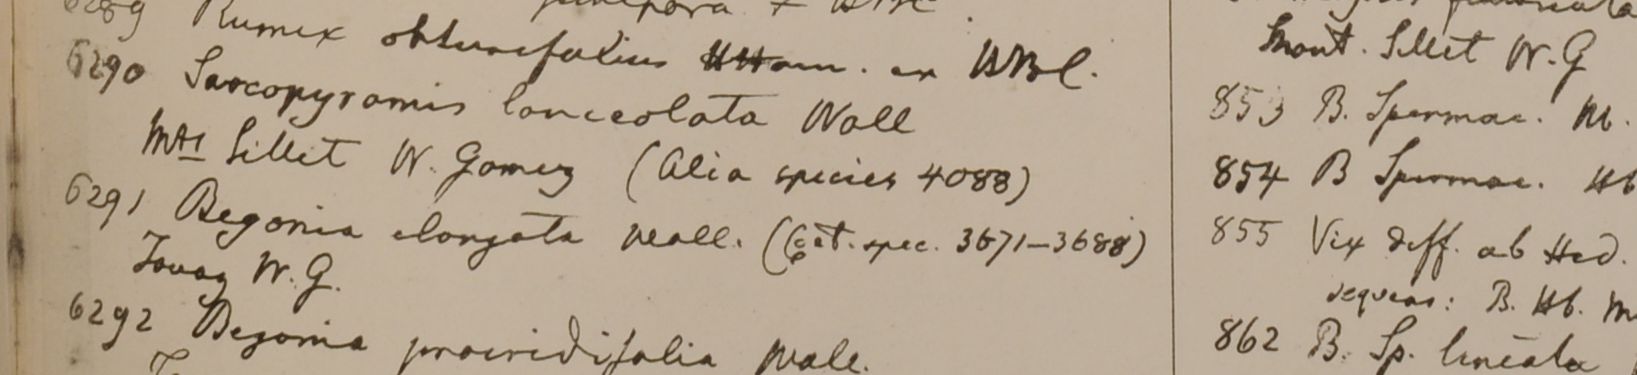 6289 Rumex obtusifolius HHam. in HBC.
6290 Sarcopyramis lanceolata Wall
Mts Sillet W. Gomez (Alia species 4088)
6291 Begonia elongata Wall. (Cet. spec. 3671-3688)
W. G.
6292 Begonia procridifolia Wall.
Mont. Sillet W. G
853 B. Spermac.
854 B Spermac. Hb
855 Vix diff. ab Hed.
sequens: B. Hb.
862 B. Sp. lineata